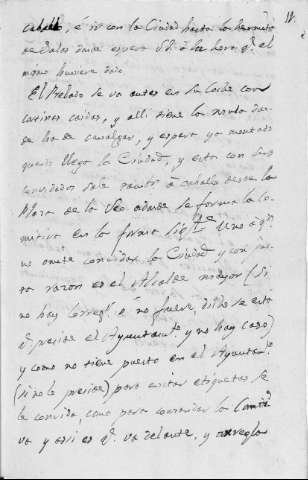 caballo, è ir con la Ciudad hasta la
de Palos donde espera S. Y. à la hora q.e el
mismo huviere dado
El Prelado se va antes en su Coche con
cortinas caidas, y alli tiene la mula don-
de ha de cavalgar, y espera ya montado
quando llega la Ciudad, y esta con sus
convidados sale á caballo desde la
Plaza de la Seo adonde se forma la Co-
mitiva en la forma sig.te Uno à q.n
no omite convidar la Ciudad y con su-
ma razon es el Alcalde mayor (Si
no hay Corregi.r è no fuere, dicho se esta
q.e preside el Ayuntam.to y no hay caso)
y como no tiene puesto en el Ayuntam.to
(si no le preside) para evitar etiquetas se
le convida, como para
va y asi es q.e va delante, y arregla